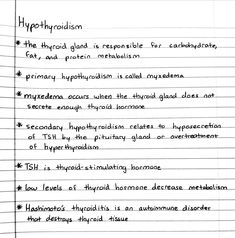 Hypothyroidism
* the thyroid gland is responsible for carbohydrate,
fat, and protein metabolism
* primary hypothyroidism is called myxedema
* myxedema occurs when the thyroid gland does not
secrete enough thyroid hormone
* secondary hypothyroidism relates to hyposecretion
of TSH by the pituitary gland or overtreatment
of hyperthyroidism
* TSH is thyroid-stimulating hormone
* low levels of thyroid hormone decrease metabolism
* Hashimoto's thyroiditis is an autoimmune disorder
that destroys thyroid tissue